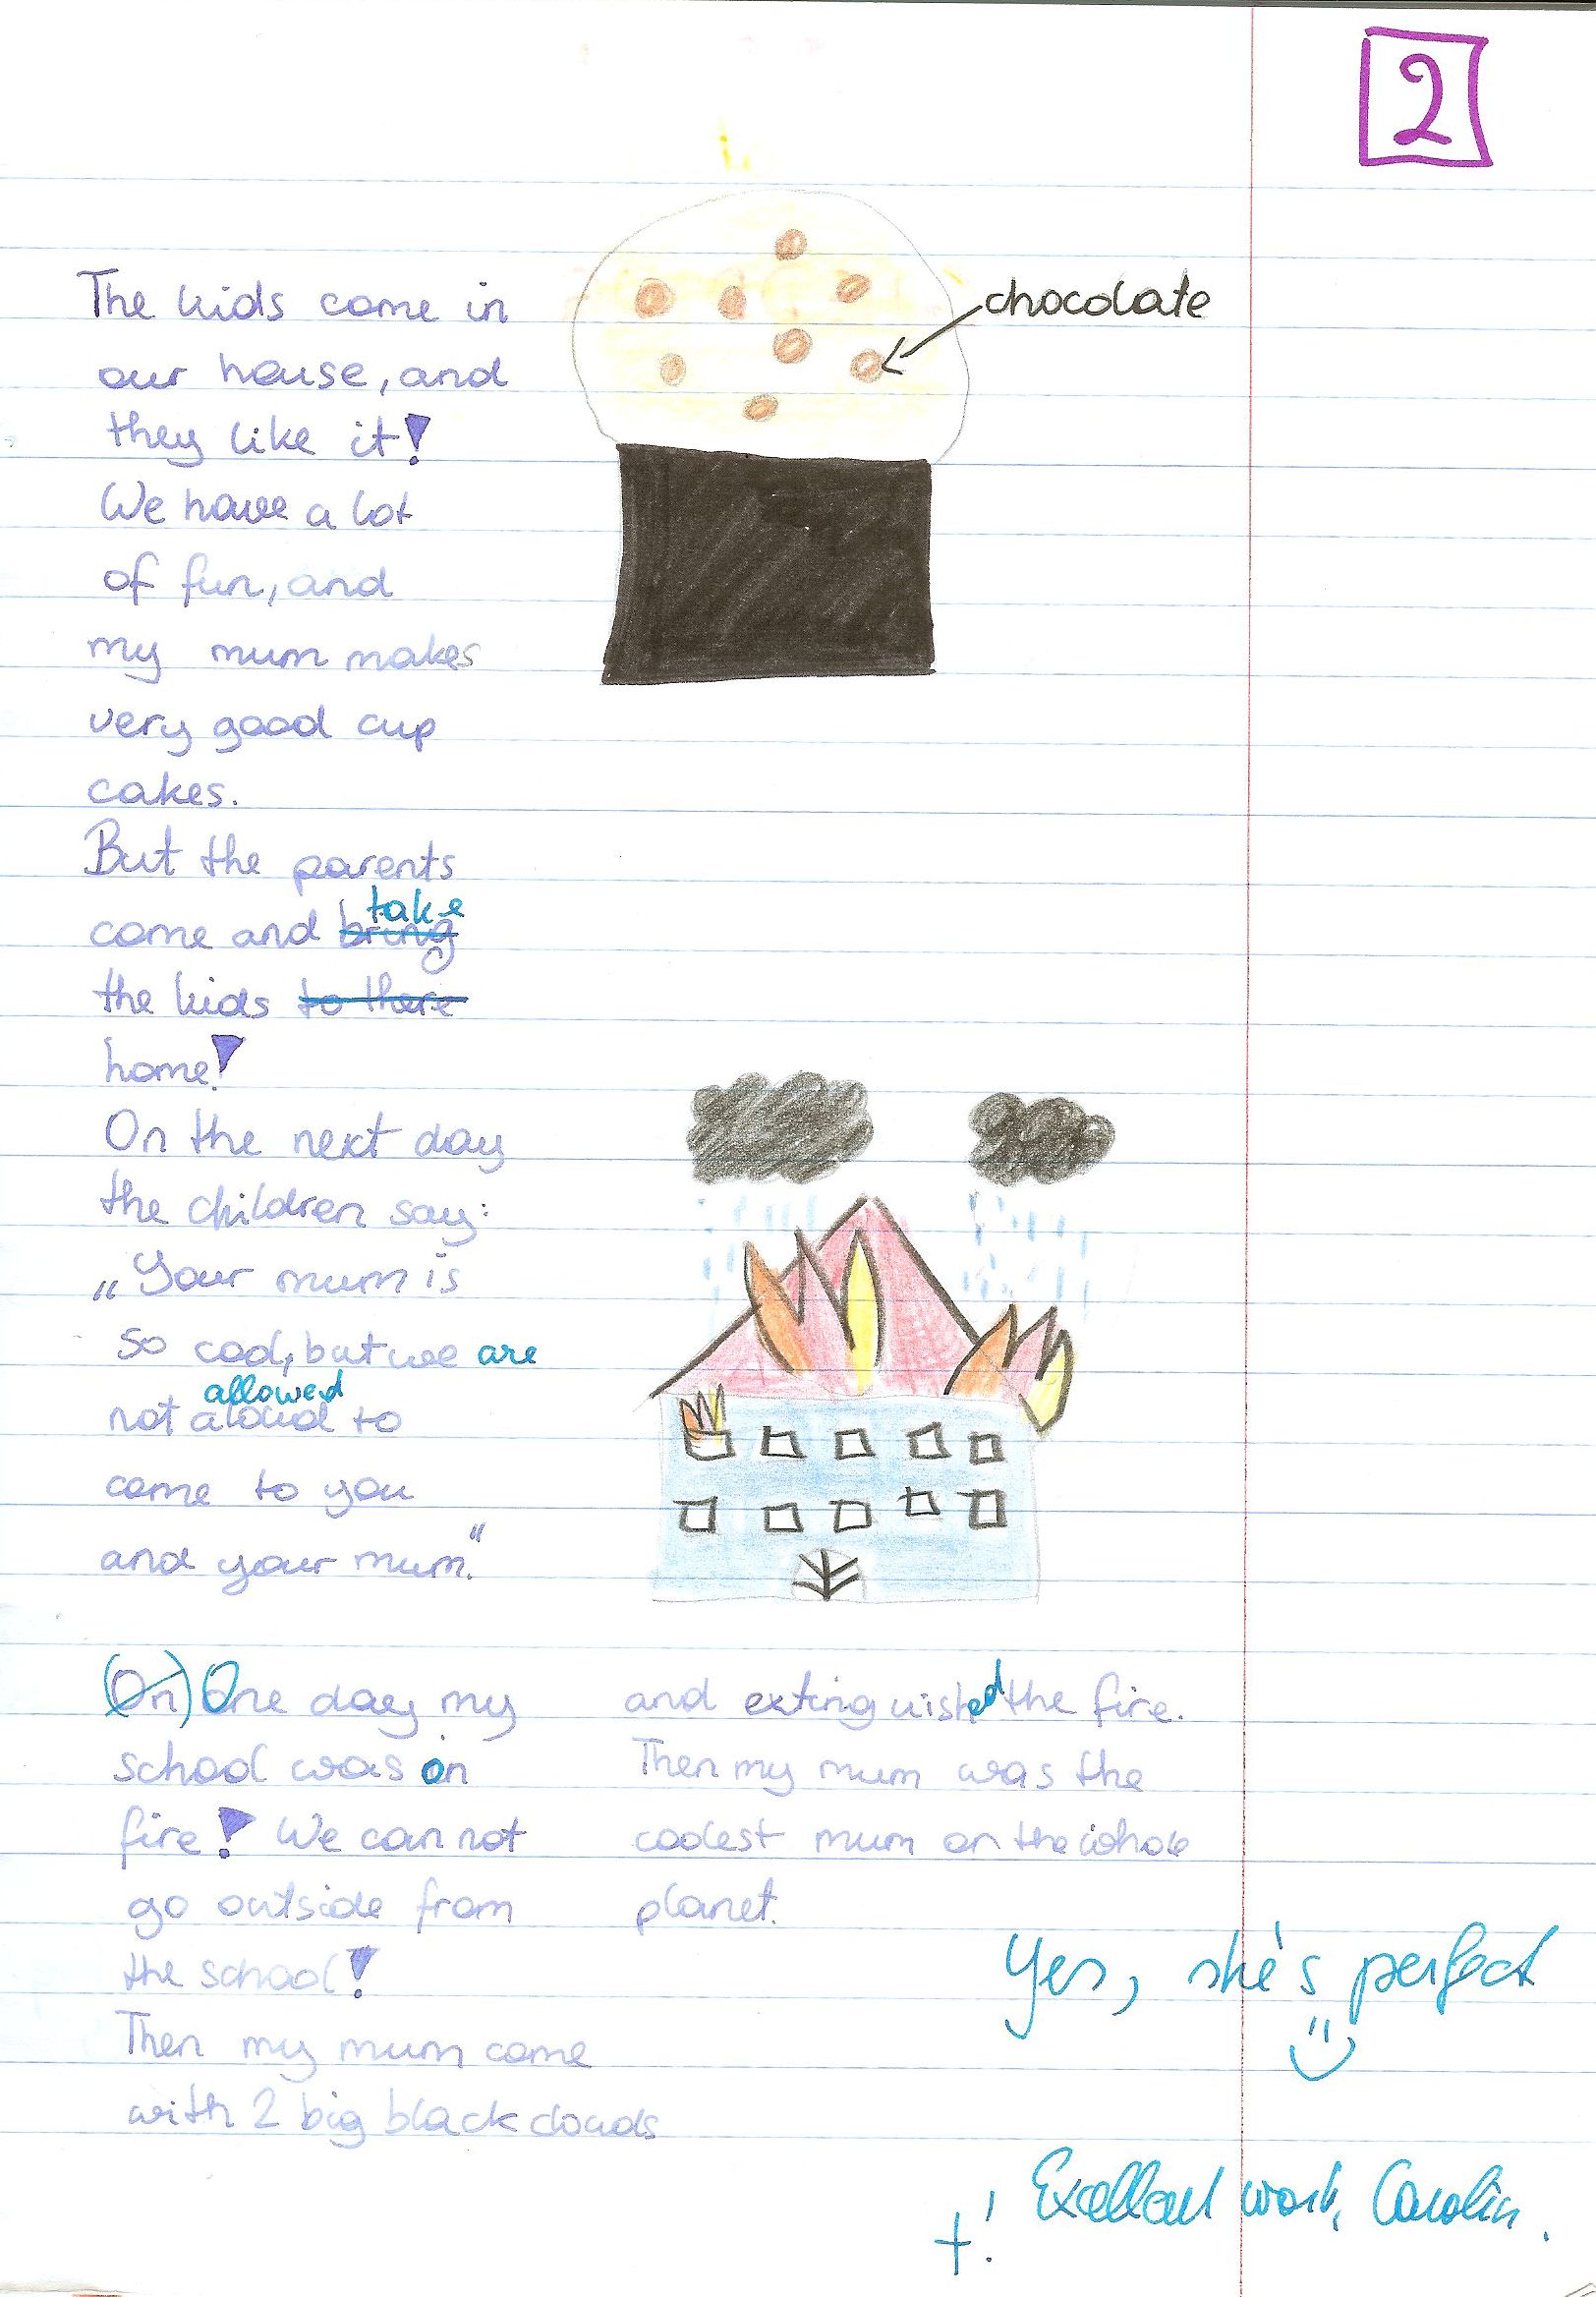 2
The kids come in
our house, and
they like it!
We have a lot
of fun, and
my mum makes
very good cup
cakes.
chocolate
But the parents
take
come and bring
the kids to there
home!
On the next day
the children say:
„Your mum is
so cool, but we are
allowed
not aloud to
come to you
and your mum."
(On) One day my
school was on
fire! We can not
go outside from
the school!
Then my mum come
with 2 big black clouds
and extinguished the fire.
Then my mum was the
coolest mum on the whole
planet.
Yes, she's perfect
+! Excellent work, Carolin.